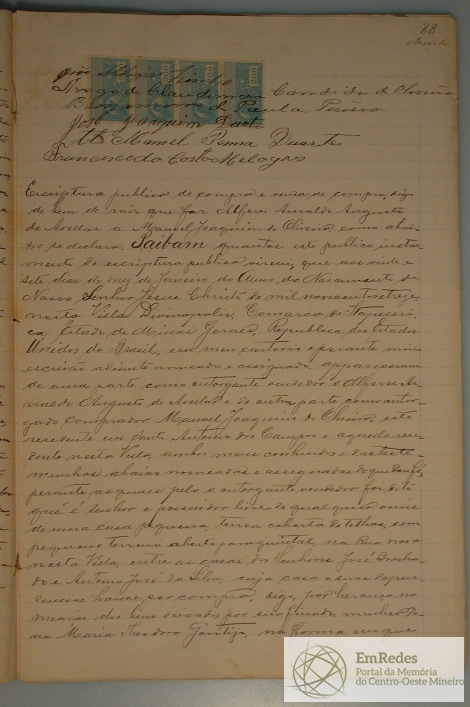 88
Candido de Oliveira
de Paula
José Joaquim
Manoel Penna Duarte
Francisco da Costa Melogas
Escriptura publica de compra e venda de compra, digo
de bem de raiz que faz Alferes Arnaldo Augusto
de Avellar a Manoel Joaquim de Oliveira, como abai-
xo se declara. Saibam quantos este publico instru-
mento de escriptura publica virem, que aos vinte e
sete dias do mez de Janeiro do Anno do Nascimento de
Nosso Senhor Jesus Christo de mil novecentos treze,
nesta Villa Divinopolis, Comarca de Itapeceri-
ca, Estado de Minas Geraes, Republica dos Estados
Unidos do Brasil, em meu cartorio e perante mim
escrivão adiante nomeado e assignado, appareceram
de uma parte como outorgante vendedor o Alferes Ar-
naldo Augusto de Avellar e de outra parte como outor-
gado comprador Manoel Joaquim de Oliveira, este
residente em Santo Antonio dos Campos e aquelle resi-
dente nesta Villa, ambos meus conhecidos e das teste-
munhas abaixo nomeadas e assignadas do que dou fé,
perante as quaes pelo o outorgante vendedor foi dito
que é senhor e possuidor livre de qualquer onus
de uma casa pequena, terrea coberta de telhas, com
pequeno terreno aberto para quintal, na Rua nova
nesta Villa, entre as casas dos Senhores José
do e Antonio José da Silva, cuja casa e suas depen-
dencias houve por compra, digo, por herança na
meação dos bens deixados por sua finada mulher Do-
na Maria Theodoro Gontijo, na forma em que
EmRedes
Portal da Memória
do Centro-Oeste Mineiro